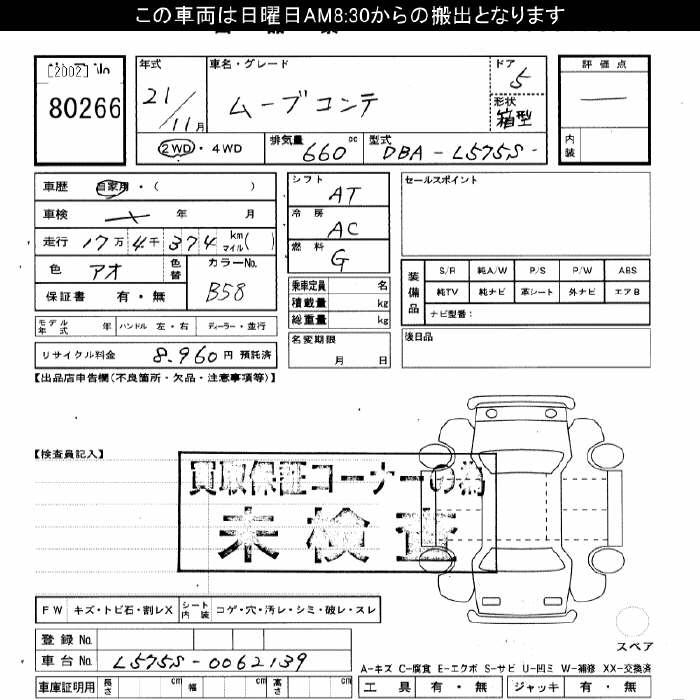 この車両は日曜日AM8:30からの搬出となります
[2002] No
80266
年式
21/11月
車名・グレード
ムーブコンテ
ドア
5
形状
箱型
2WD ・ 4WD
排気量
660 cc
型式
DBA - L575S -
評価点
内装
車歴 自家用 ・( )
車検 年 月
走行 17万 4千 374 km マイル( )
色 アオ 色替
カラーNo.
B58
保証書 有・無
シフト
AT
冷房
AC
燃料
G
セールスポイント
乗車定員 名
積載量 kg
総重量 kg
装備品
S/R 純A/W P/S P/W ABS
純TV 純ナビ 革シート 外ナビ エアB
ナビ型番:
モデル年式 年 ハンドル 左・右 ディーラー・並行
名変期限
月 日
後日品
リサイクル料金 8,960 円 預託済
【出品店申告欄(不良箇所・欠品・注意事項等)】
【検査員記入】
買取保証コーナーの為
未検査
FW キズ・トビ石・割レX シート内装 コゲ・穴・汚レ・シミ・破レ・スレ
スペア
登録No.
車台No. L575S-0062139
A-キズ C-腐食 E-エクボ S-サビ U-凹ミ W-補修 XX-交換済
車庫証明用 長さ cm 幅 cm 高さ cm
工具 有・無 ジャッキ 有・無